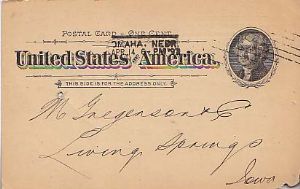 POSTAL CARD - ONE CENT.
OMAHA, NEBR
APR 14 6-PM '97
United States of America.
THIS SIDE IS FOR THE ADDRESS ONLY.
M. Gregerson & Co
Living Springs
Iowa